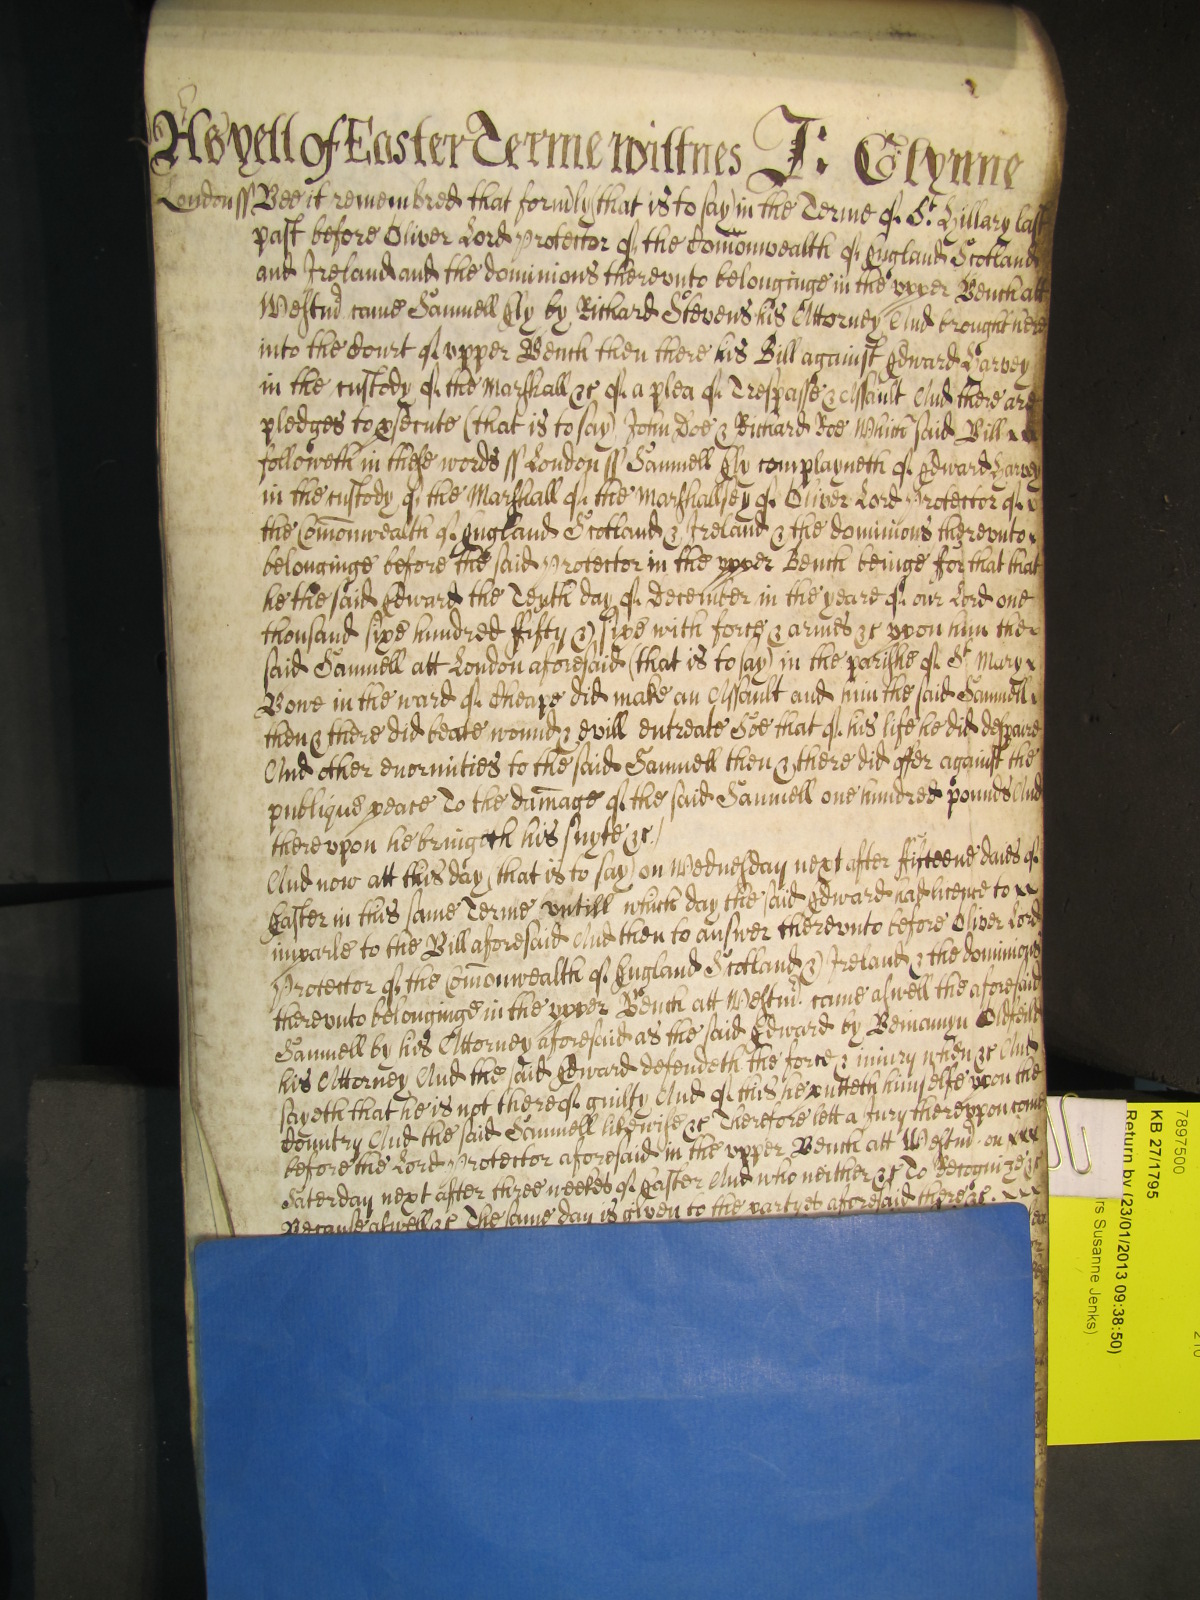 As yett of Easter Terme wittnes J: Glynne
London ss Bee it remembred that form̃ly (that is to say) in the Terme of St. Hillary last
past before Oliver Lord Protector of the Com̃onwealth of England Scotland
and Ireland and the dominions therevnto belonginge in the vpper Bench att
Westm̃ came Samuell Ely by Richard Stevens his Attorney And brought here
into the Court of vpper Bench then there his Bill against Edward Harvey
in the custody of the Marshall &c of a plea of Trespasse & Assault And there are
pledges to psecute (that is to say) John Doe & Richard Roe Which said Bill
followeth in these words ss London ss Samuell Ely complayneth of Edward Harvey
in the custody of the Marshall of the Marshallsey of Oliver Lord Protector of
the Com̃onwealth of England Scotland & Ireland & the dominions therevnto
belonginge before the said Protector in the vpper Bench beinge For that that
he the said Edward the Tenth day of December in the yeare of our Lord one
thousand sixe hundred fifty & sixe with force & armes &c vpon him the
said Samuell att London aforesaid (that is to say) in the parishe of St. Mary
Bowe in the ward of Cheape did make an Assault and him the said Samuell
then & there did beate wound & evill entreate Soe that of his life he did despaire
And other enormities to the said Samuell then & there did offer against the
publique peace To the dam̃age of the said Samuell one hundred pounds And
therevpon he bringeth his suyte &c
And now att this day (that is to say) on Wednesday next after fifteene daies of
Easter in this same Terme vntill which day the said Edward had licence to
imparle to the Bill aforesaid And then to answer therevnto before Oliver Lord
Protector of the Com̃onwealth of England Scotland & Ireland & the dominions
therevnto belonginge in the vpper Bench att Westm̃ came aswell the aforesaid
Samuell by his Attorney aforesaid as the said Edward by Beniamyn Oldfeild
his Attorney And the said Edward defendeth the force & iniury when &c And
sayeth that he is not thereof guilty And of this he putteth himselfe vpon the
Country And the said Samuell likewise &c Therefore lett a Jury therevpon come
before the Lord Protector aforesaid in the vpper Bench att Westm̃ on
Saterday next after three weekes of Easter And who neither &c To Recognize &c
Because aswell &c The same day is given to the partyes aforesaid there &c
7897500
KB 27/1795
Return by (23/01/2013 09:38:50)
rs Susanne Jenks)
210